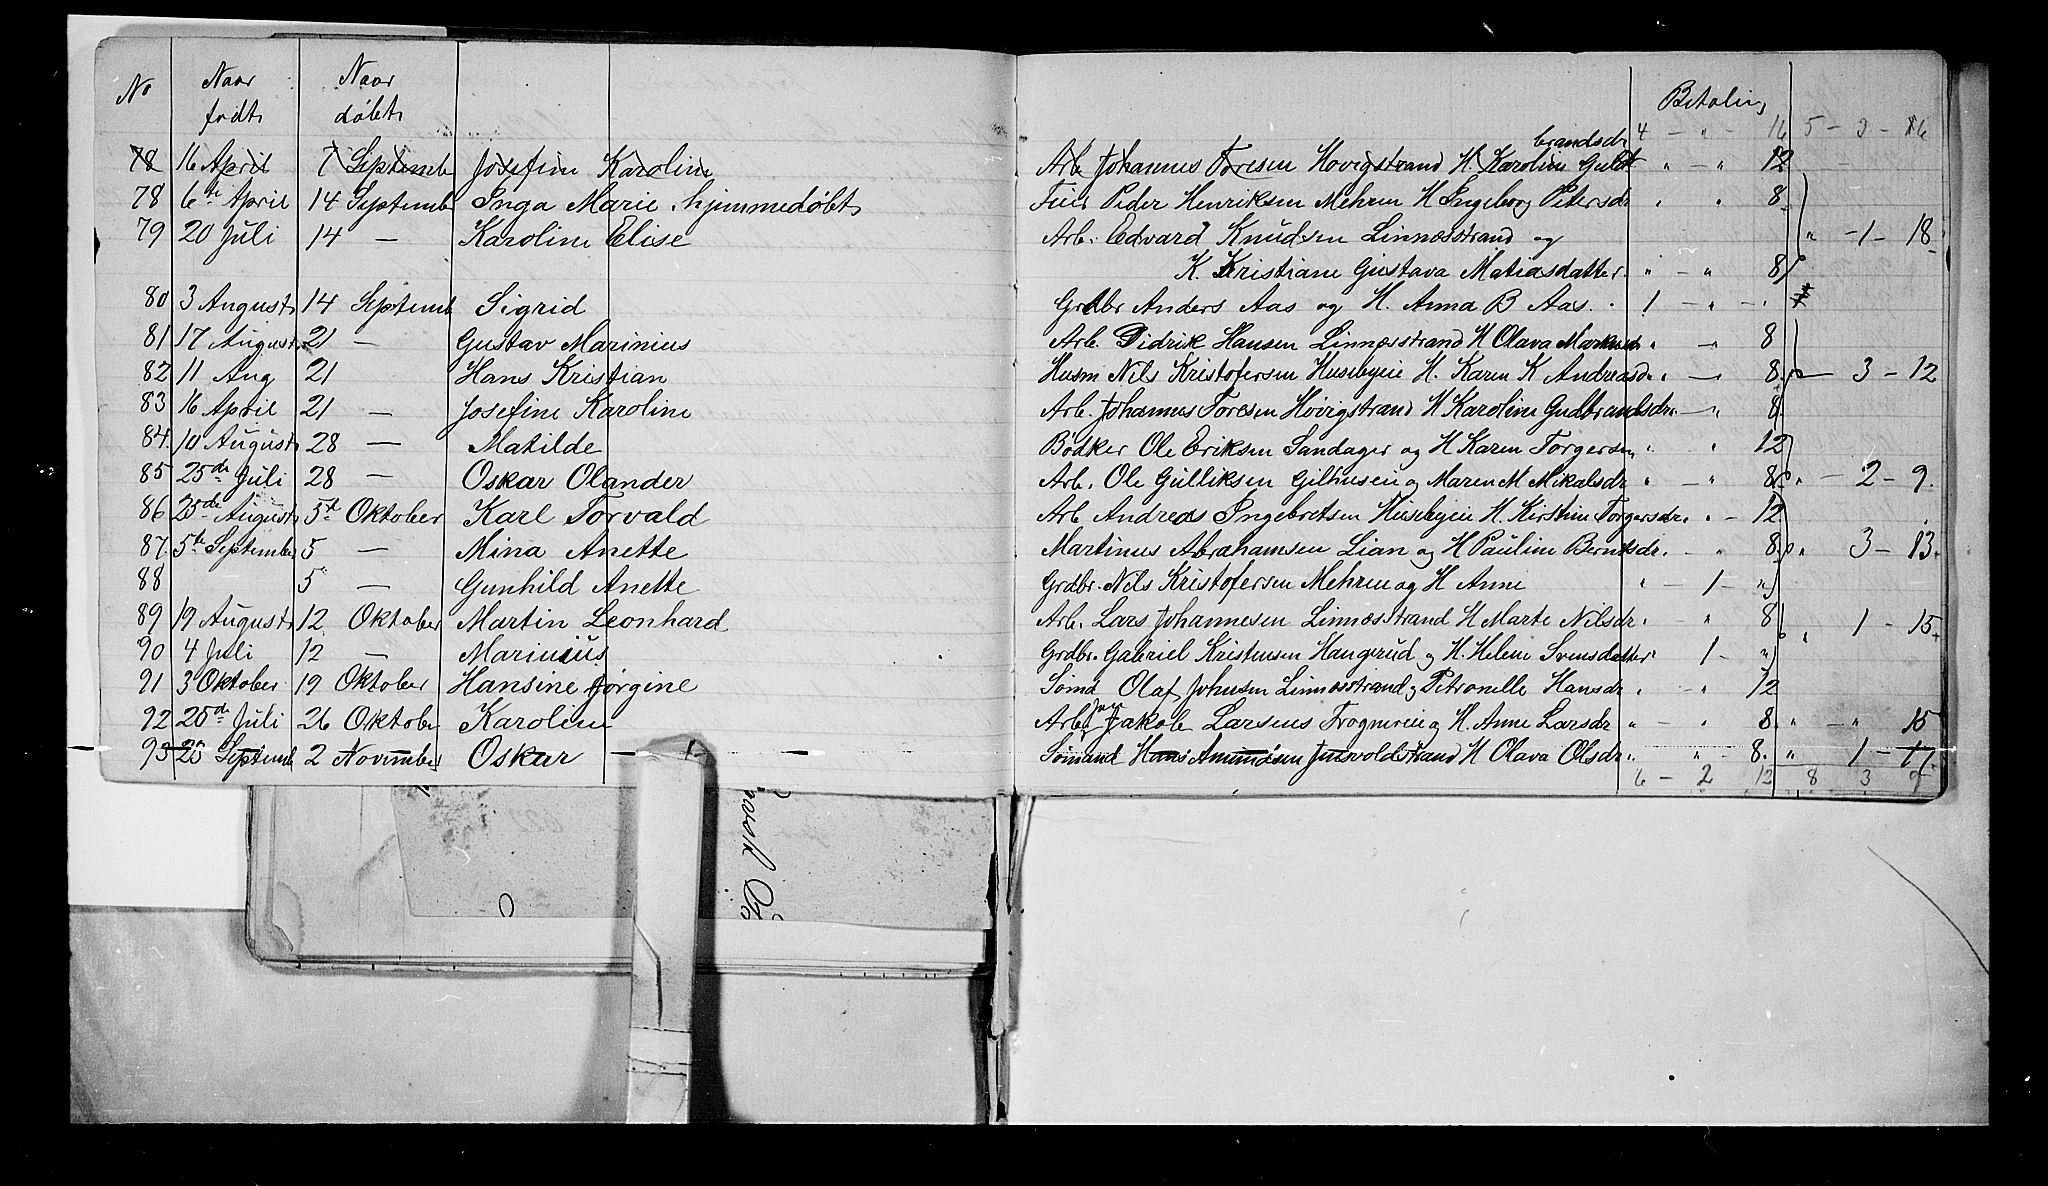 No Naar født Naar døbt Betaling
4 — " — 16 5 — 3 — 16
brandsdr
78 16 April 7 Septemb Josefine Karoline Arb Johannes Toresen Hovigstrand H. Karoline Guld " — " 12
78 6te April 14 Septemb Inga Marie hjemmedøbt Peder Henriksen Mehren H Ingeborg Petersdr " " 8
79 20 Juli 14 — Karoline Elise Arb. Edvard Knudsen Linnesstrand og " — 1 — 18
K. Kristiane Gustava Matiasdatter. " — " 8
80 3 August 14 Septemb Sigrid Grdbr Anders Aas og H. Anna B Aas. 1 — " — "
81 17 August 21 — Gustav Marinius Arb. Didrik Hansen Linnesstrand H Olava Markusdr " — " 8
82 11 Aug 21 Hans Kristian Husm Nils Kristofersen Husebyeie H. Karen K Andreasdr " — 8 — 3 — 12
83 16 April 21 — Josefine Karoline Arb. Johannes Toresen Hovigstrand H Karoline Gudbrandsdr — " 8
84. 10 August 28 — Matilde Bødker Ole Eriksen Sandager og H Karen Torgersen " " 12
85 25de Juli 28 — Oskar Olander Arb. Ole Gulliksen Gilhuseie og Maren M Mikalsdr " — " 8 " — 2 — 9.
86 25de August 5te Oktober Karl Torvald Arb Andreas Ingebretsen Husebyeie H. Kirstine Torgersdr " — 12
87. 5te September 5 — Mina Anette Martinus Abrahamsen Lian og H Pauline Berntsdr. — " 8 " 3 — 13.
88 5 — Gunhild Anette Grdbr. Nils Kristofersen Mehren og H Anne " — 1 — "
89 19 August 12 Oktober Martin Leonhard Arb. Lars Johannesen Linnesstrand H Marte Nilsdr " " 8 " 1 — 15.
90 4 Juli 12 — Marinius Grdbr. Gabriel Kristensen Haugerud og H. Helene Svensdatter " 1 — "
91 3 Oktober 19 Oktober Hansine Jørgine Sømd Olaf Johnsen Linnesstrand og Petronelle Hansdr " — " 12
92 25de Juli 26 Oktober Karoline Arb. Jakob Larsens og H. Anne Larsdr " — " 8. " — " 15
93 25 Septemb 2 November Oskar Sømand Hans Amundsen H Olava Olsdr " " — 8. " 1 — 17
6 — 2 12 8 3 9